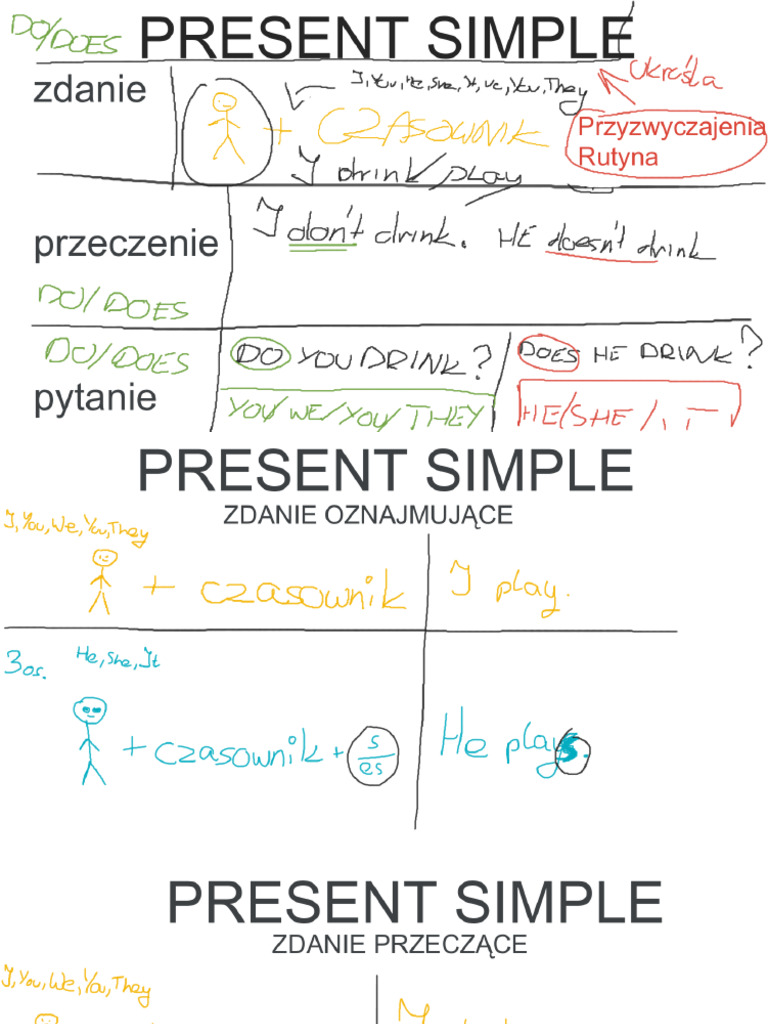 DO/DOES PRESENT SIMPLE
zdanie
I, You, He, She, It, We, You, They
+ CZASOWNIK
określa
Przyzwyczajenia
Rutyna
I drink/play
przeczenie
I don't drink. HE doesn't drink
DO/DOES
DO/DOES
pytanie
DO YOU DRINK?
DOES HE DRINK?
YOU/WE/YOU/THEY
HE/SHE/
PRESENT SIMPLE
ZDANIE OZNAJMUJĄCE
I, You, We, You, They
+ czasownik
I play.
3os.
He, She, It
+ czasownik + s/es
He plays.
PRESENT SIMPLE
ZDANIE PRZECZĄCE
I, You, We, You, They